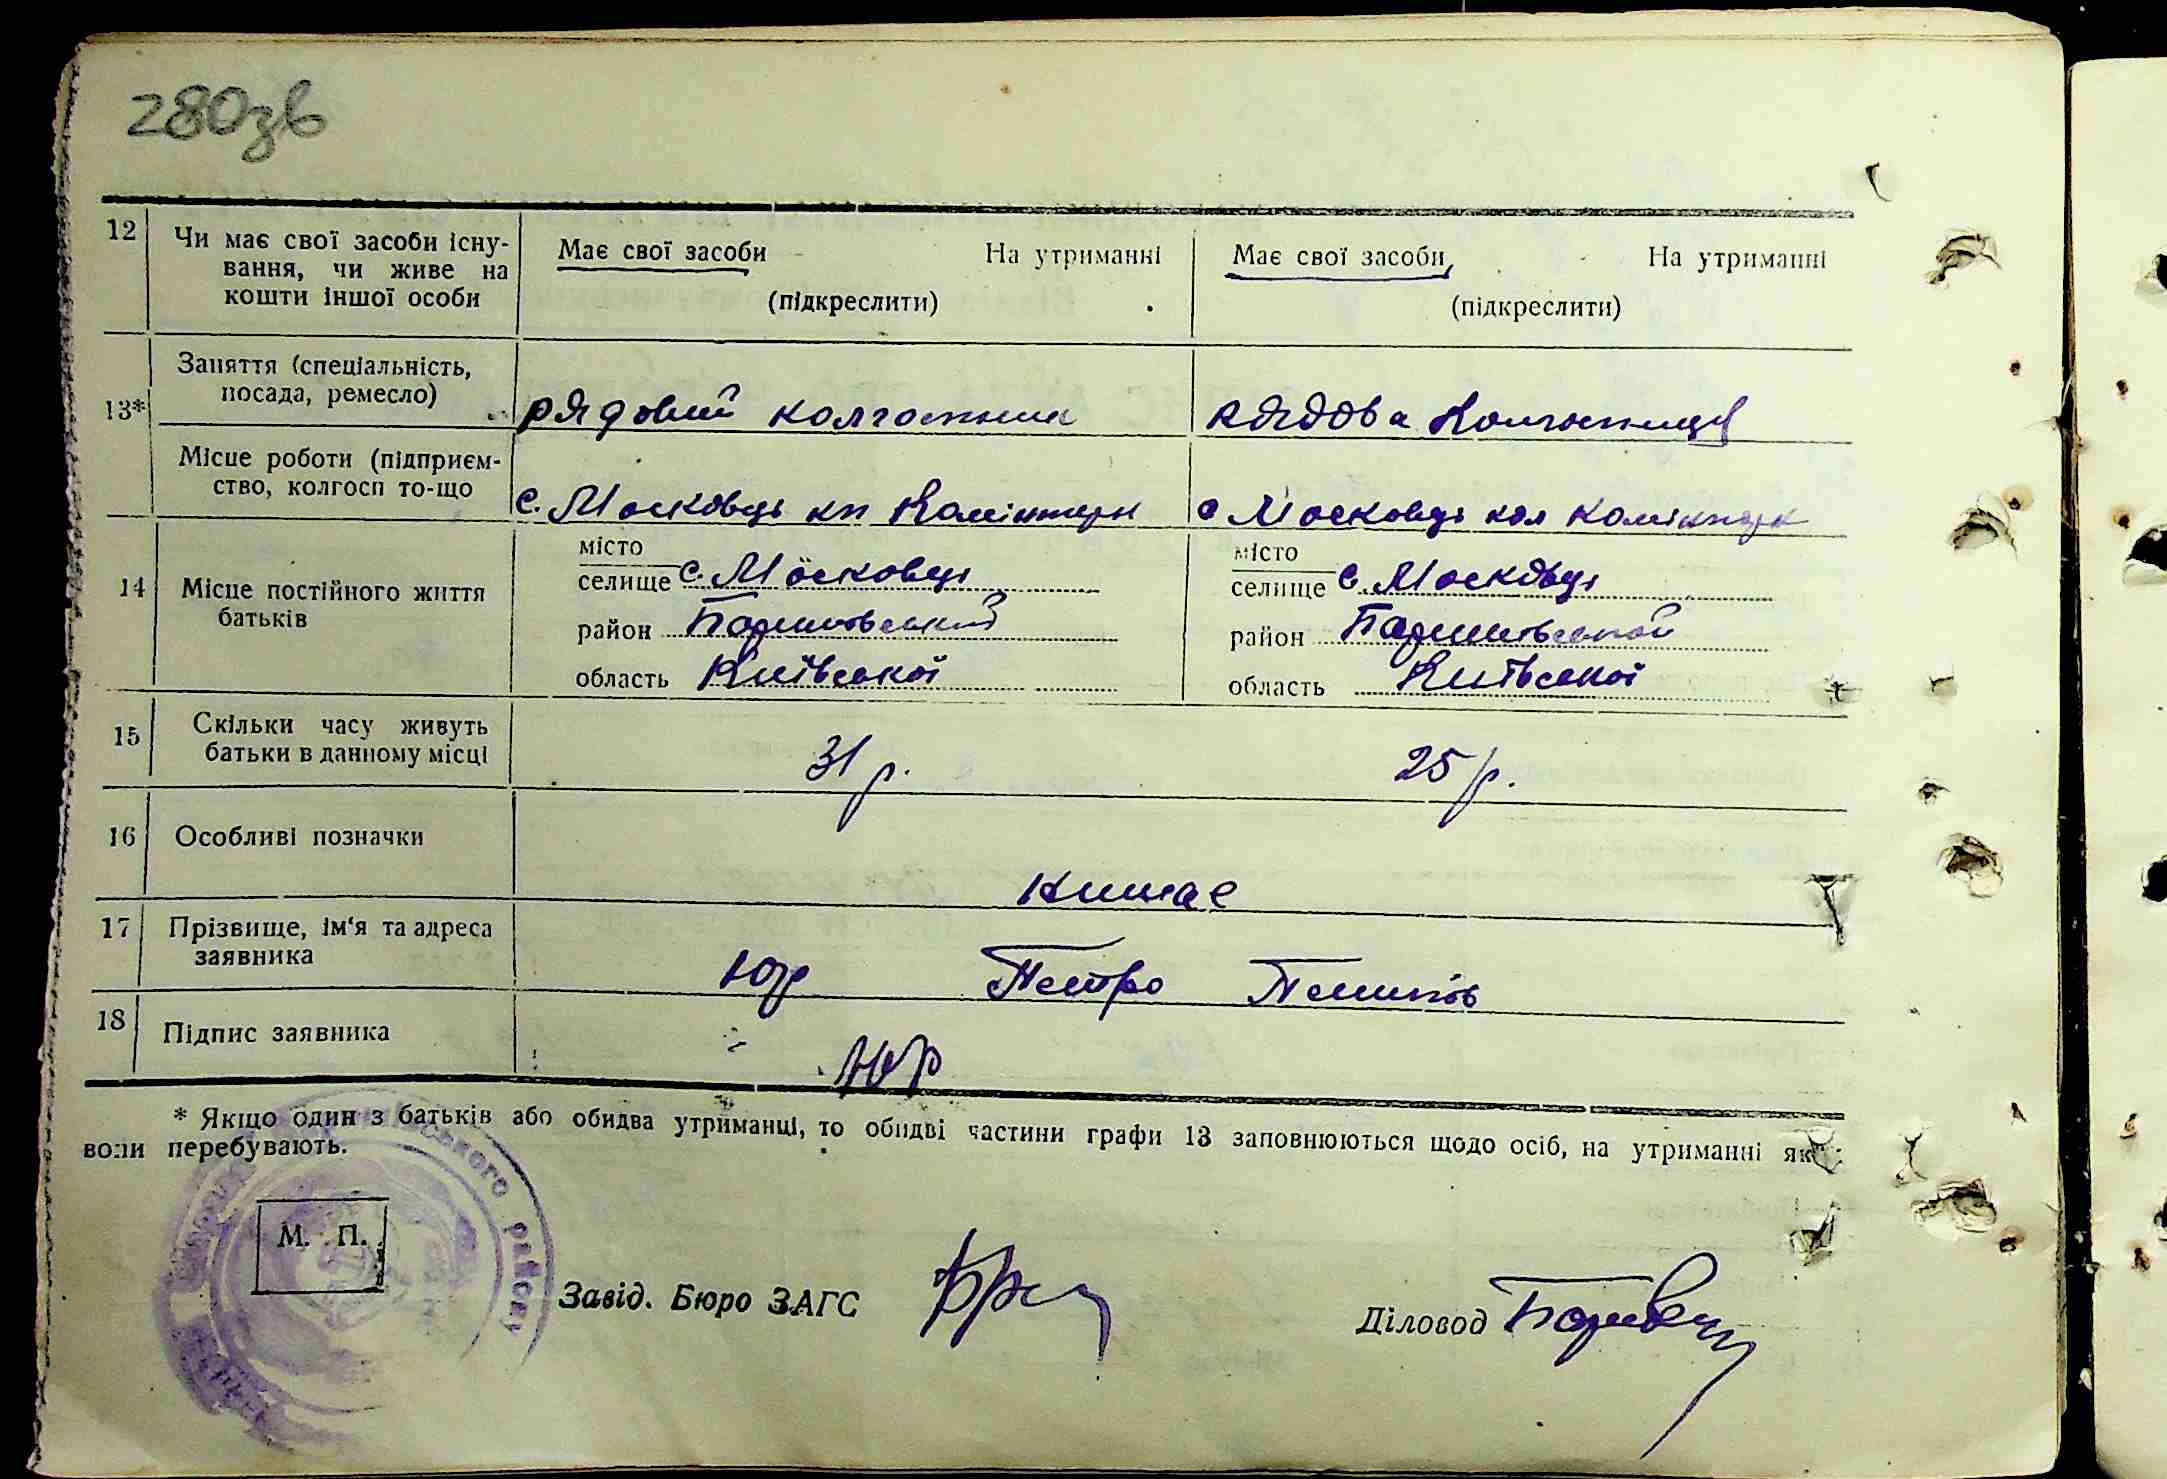 280зв
12 Чи має свої засоби існу- Має свої засоби На утриманні Має свої засоби На утриманні
вання, чи живе на
кошти іншої особи (підкреслити) (підкреслити)
Заняття (спеціальність,
13* посада, ремесло) рядовий колгоспник рядова Колгоспниця
Місце роботи (підприєм-
ство, колгосп то-що с. Московці кп Комінтерн с Московці кол Комінтерн
місто місто
14 Місце постійного життя селище с. Московці селище с. Московці
батьків район район
область Київської область Київської
15 Скільки часу живуть
батьки в данному місці 31 р. 25 р.
16 Особливі позначки
немає
17 Прізвище, ім'я та адреса
заявника Юр Петро
18 Підпис заявника Юр
* Якщо один з батьків або обидва утриманці, то обидві частини графи 13 заповнюються щодо осіб, на утриманні яких
вони перебувають.
ського райсву
М. П.
Завід. Бюро ЗАГС
Діловод